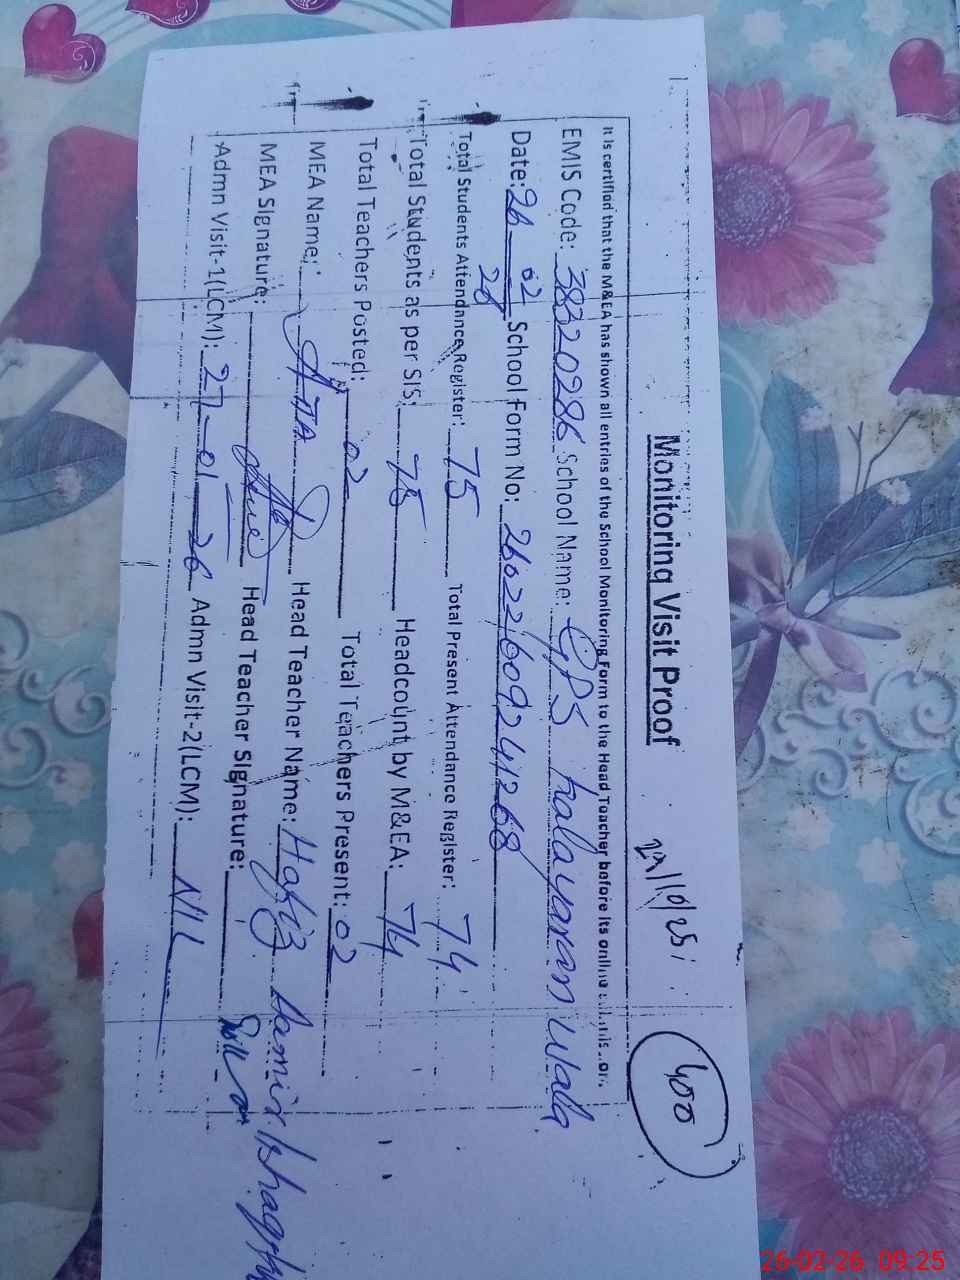 Monitoring Visit Proof
29/10/25
400
It is certified that the M&EA has shown all entries of the School Monitoring Form to the Head Teacher before its online
EMIS Code: 38320286 School Name: GPS kalayaran wala
Date: 26 02 26 School Form No: 26022609241268
Total Students Attendance Register: 75 Total Present Attendance Register: 74
Total Students as per SIS: 75 Headcount by M&EA: 74
Total Teachers Posted: 02 Total Teachers Present: 02
MEA Name: Head Teacher Name: Hafiz Aamir Ishaq
MEA Signature: Head Teacher Signature:
Admn Visit-1(LCM): 27-01-26 Admn Visit-2(LCM): NIL
26-02-26 09:25